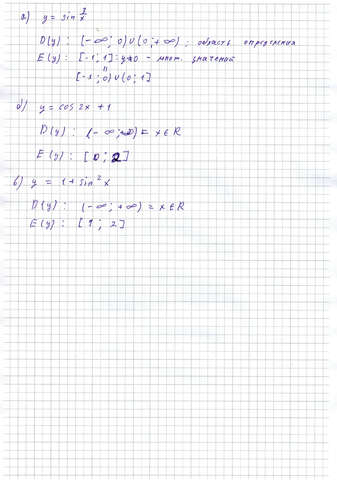 а) y = sin 2/x
D(y) : [-∞; 0) ∪ (0; +∞) ; область определения
E(y) : [-1; 1] : y≠0 - множ. значений
[-1; 0) ∪ (0; 1]
б) y = cos 2x + 1
D(y) : (-∞; +∞) = x ∈ R
E(y) : [0; 2]
в) y = 1 + sin² x
D(y) : (-∞; +∞) = x ∈ R
E(y) : [1; 2]